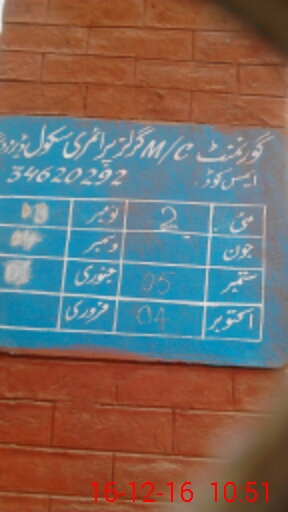 گورنمنٹ M/C گرلز پرائمری سکول
ایمس کوڈ 34620292
مئی 2 نومبر 03
جون دسمبر 04
ستمبر 05 جنوری 01
اکتوبر 04 فروری
16-12-16 10:51